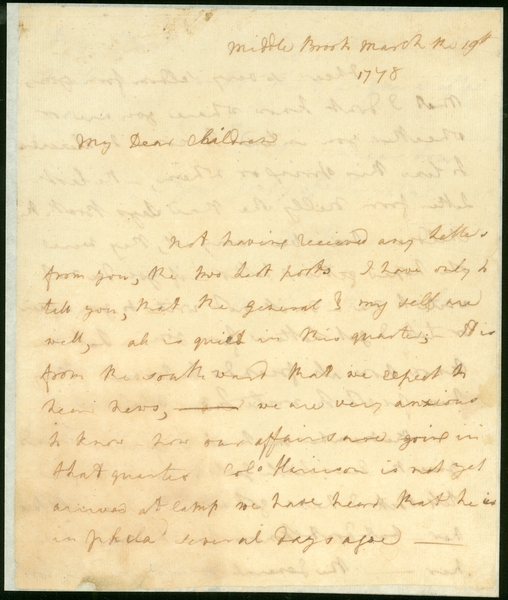 Middle Brook March the 19th
1778
My Dear Children
Not having recieved any letters
from you, the two last posts I have only to
tell you, that the general & my self are
well, all is quiet in this quarter; It is
from the south ward that we expect to
hear news, —— we are very anxious
to know how our affairs are going in
that quarter Colo Harrison is not yet
arrived at camp we have heard that he is
in phila several days agoe —